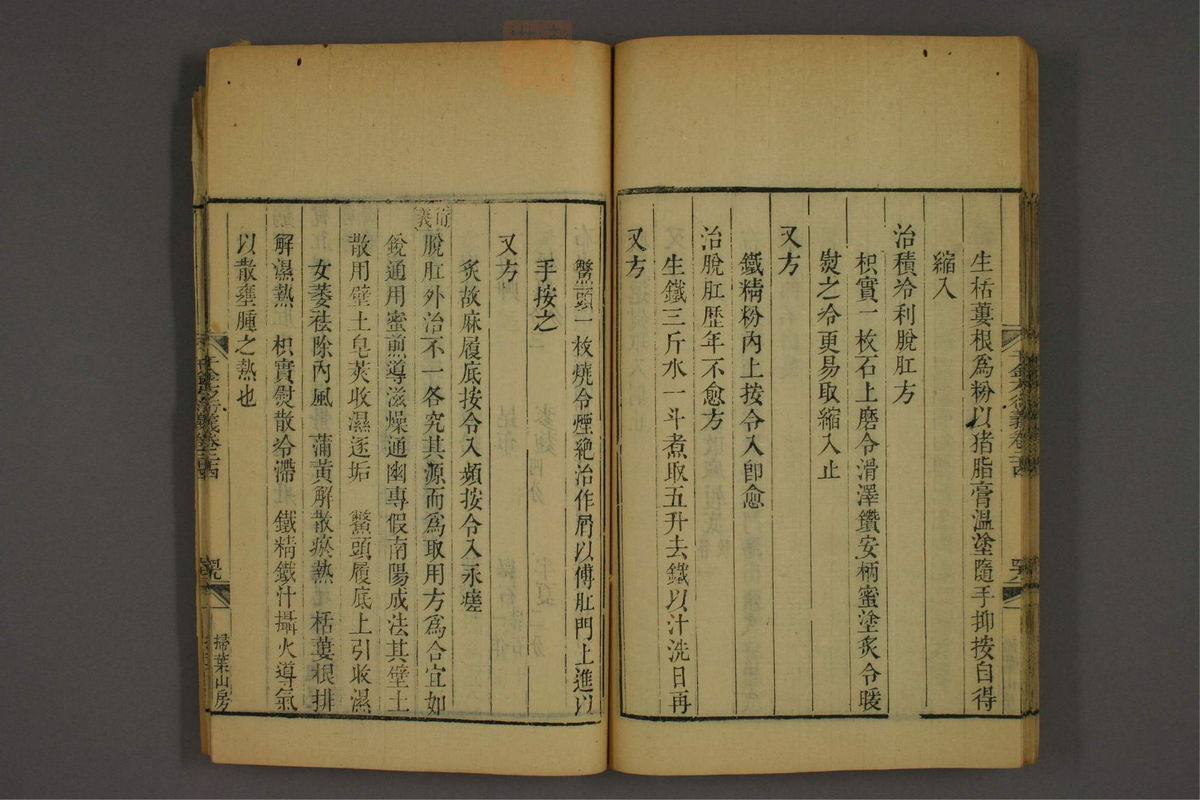 生栝蔞根為粉以猪脂膏溫塗隨手抑按自得
縮入
治積冷利脫肛方
枳實一枚石上磨令滑澤鑽安柄蜜塗炙令暖
熨之冷更易取縮入止
又方
鐵精粉內上按令入卽愈
治脫肛歷年不愈方
生鐵三斤水一斗煮取五升去鐵以汁洗日再
又方
鱉頭一枚燒令煙絕治作屑以傅肛門上進以
手按之
又方
炙故麻履底按令入頻按令入永瘥
衍義
脫肛外治不一各究其源而為取用方為合宜如
銳通用蜜煎導滋燥通幽專假南陽成法其壁土
散用壁土皂莢收濕逐垢 鱉頭履底上引收濕
女萎祛除內風 蒲黃解散瘀熱 栝蔞根排
解濕熱 枳實熨散冷滯 鐵精鐵汁攝火導氣
以散壅腫之熱也
千金方衍義卷二十四
掃葉山房